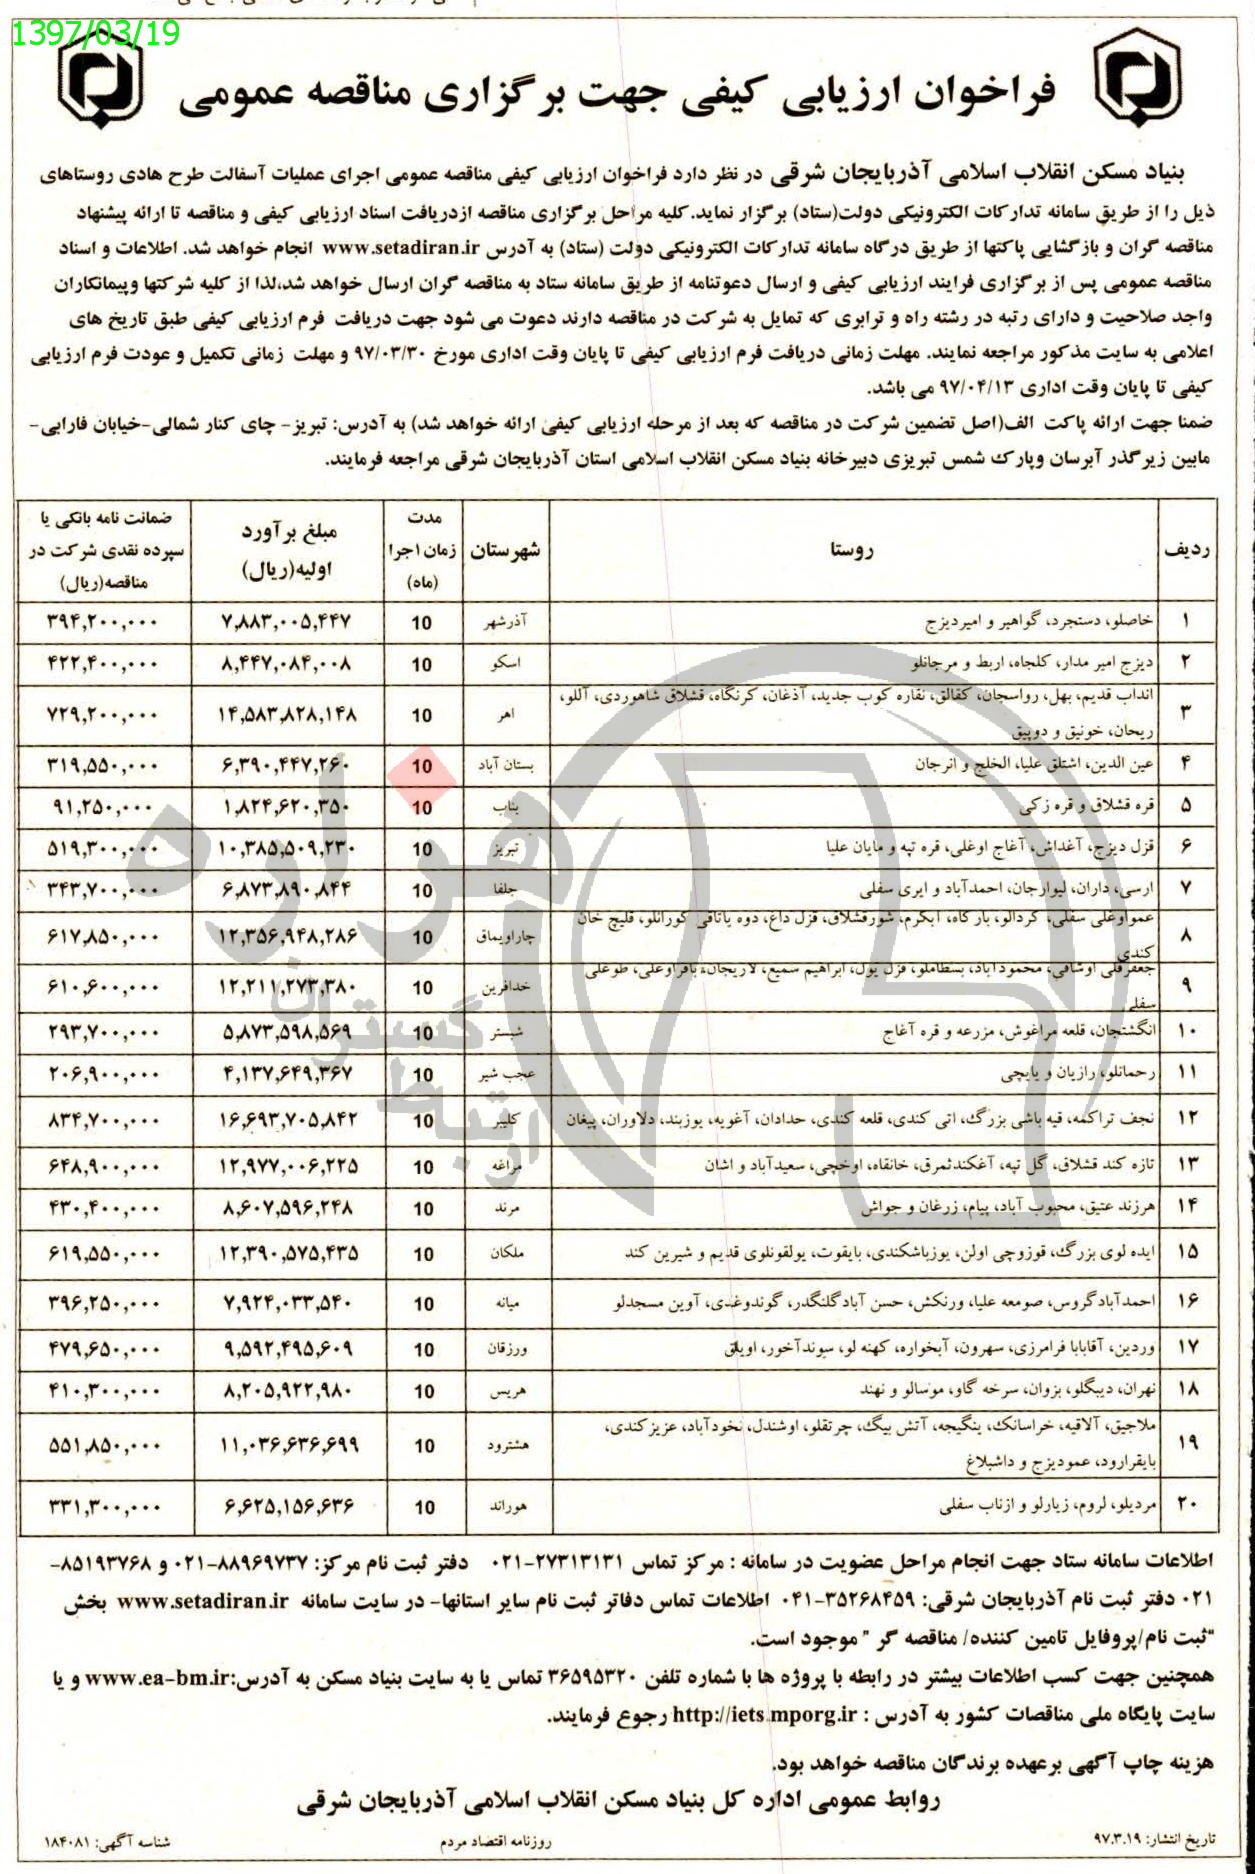 1397/03/19
فراخوان ارزیابی کیفی جهت برگزاری مناقصه عمومی
بنیاد مسکن انقلاب اسلامی آذربایجان شرقی در نظر دارد فراخوان ارزیابی کیفی مناقصه عمومی اجرای عملیات آسفالت طرح هادی روستاهای
ذیل را از طریق سامانه تدارکات الکترونیکی دولت(ستاد) برگزار نماید.کلیه مراحل برگزاری مناقصه ازدریافت اسناد ارزیابی کیفی و مناقصه تا ارائه پیشنهاد
مناقصه گران و بازگشایی پاکتها از طریق درگاه سامانه تدارکات الکترونیکی دولت (ستاد) به آدرس www.setadiran.ir انجام خواهد شد. اطلاعات و اسناد
مناقصه عمومی پس از برگزاری فرایند ارزیابی کیفی و ارسال دعوتنامه از طریق سامانه ستاد به مناقصه گران ارسال خواهد شد،لذا از کلیه شرکتها وپیمانکاران
واجد صلاحیت و دارای رتبه در رشته راه و ترابری که تمایل به شرکت در مناقصه دارند دعوت می شود جهت دریافت فرم ارزیابی کیفی طبق تاریخ های
اعلامی به سایت مذکور مراجعه نمایند. مهلت زمانی دریافت فرم ارزیابی کیفی تا پایان وقت اداری مورخ ۹۷/۰۳/۳۰ و مهلت زمانی تکمیل و عودت فرم ارزیابی
کیفی تا پایان وقت اداری ۹۷/۰۴/۱۳ می باشد.
ضمنا جهت ارائه پاکت الف(اصل تضمین شرکت در مناقصه که بعد از مرحله ارزیابی کیفی ارائه خواهد شد) به آدرس: تبریز- چای کنار شمالی-خیابان فارابی-
مابین زیرگذر آبرسان وپارک شمس تبریزی دبیرخانه بنیاد مسکن انقلاب اسلامی استان آذربایجان شرقی مراجعه فرمایند.
ردیف روستا شهرستان مدت زمان اجرا (ماه) مبلغ برآورد اولیه(ریال) ضمانت نامه بانکی یا سپرده نقدی شرکت در مناقصه(ریال)
۱ خاصلو، دستجرد، گواهیر و امیردیزج آذرشهر 10 ۷,۸۸۳,۰۰۵,۴۴۷ ۳۹۴,۲۰۰,۰۰۰
۲ دیزج امیر مدار، کلجاه، اربط و مرجانلو اسکو 10 ۸,۴۴۷,۰۸۴,۰۰۸ ۴۲۲,۴۰۰,۰۰۰
۳ انداب قدیم، بهل، رواسجان، کفالق، نقاره کوب جدید، آذغان، کرنگاه، قشلاق شاهوردی، آللو،
ریحان، خونیق و دوپیق اهر 10 ۱۴,۵۸۳,۸۲۸,۱۴۸ ۷۲۹,۲۰۰,۰۰۰
۴ عین الدین، اشتلق علیا، الخلج و انرجان بستان آباد 10 ۶,۳۹۰,۴۴۷,۲۶۰ ۳۱۹,۵۵۰,۰۰۰
۵ قره قشلاق و قره زکی بناب 10 ۱,۸۲۴,۶۲۰,۳۵۰ ۹۱,۲۵۰,۰۰۰
۶ قزل دیزج، آغداش، آغاج اوغلی، قره تپه و مایان علیا تبریز 10 ۱۰,۳۸۵,۵۰۹,۲۳۰ ۵۱۹,۳۰۰,۰۰۰
۷ ارسی، داران، لیوارجان، احمدآباد و ایری سفلی جلفا 10 ۶,۸۷۳,۸۹۰,۸۴۴ ۳۴۳,۷۰۰,۰۰۰
۸ عمواوغلی سفلی، کردالو، بارگاه، آبگرم، شورقشلاق، قزل داغ، دوه یاتاقی کورانلو، قلیچ خان
کندی چاراویماق 10 ۱۲,۳۵۶,۹۴۸,۲۸۶ ۶۱۷,۸۵۰,۰۰۰
۹ جعفرقلی اوشاقی، محمودآباد، بسطاملو، قزل یول، ابراهیم سمیع، لاریجان، باقراوغلی، طوعلی
سفلی خدافرین 10 ۱۲,۲۱۱,۲۷۳,۳۸۰ ۶۱۰,۶۰۰,۰۰۰
۱۰ انگشتجان، قلعه مراغوش، مزرعه و قره آغاج شبستر 10 ۵,۸۷۳,۵۹۸,۵۶۹ ۲۹۳,۷۰۰,۰۰۰
۱۱ رحمانلو، رازیان و یایچی عجب شیر 10 ۴,۱۳۷,۶۴۹,۳۶۷ ۲۰۶,۹۰۰,۰۰۰
۱۲ نجف تراکمه، قیه باشی بزرگ، اتی کندی، قلعه کندی، حدادان، آغویه، یوزبند، دلاوران، پیغان کلیبر 10 ۱۶,۶۹۳,۷۰۵,۸۴۲ ۸۳۴,۷۰۰,۰۰۰
۱۳ تازه کند قشلاق، گل تپه، آغکندثمرق، خانقاه، اوخچی، سعیدآباد و اشان مراغه 10 ۱۲,۹۷۷,۰۰۶,۲۲۵ ۶۴۸,۹۰۰,۰۰۰
۱۴ هرزند عتیق، محبوب آباد، پیام، زرغان و جواش مرند 10 ۸,۶۰۷,۵۹۶,۲۴۸ ۴۳۰,۴۰۰,۰۰۰
۱۵ ایده لوی بزرگ، قوزوچی اولن، یوزباشکندی، بایقوت، یولقونلوی قدیم و شیرین کند ملکان 10 ۱۲,۳۹۰,۵۷۵,۴۳۵ ۶۱۹,۵۵۰,۰۰۰
۱۶ احمدآبادگروس، صومعه علیا، ورنکش، حسن آبادگلنگدر، گوندوغدی، آوین مسجدلو میانه 10 ۷,۹۲۴,۰۳۳,۵۴۰ ۳۹۶,۲۵۰,۰۰۰
۱۷ وردین، آقابابا فرامرزی، سهرون، آبخواره، کهنه لو، سوندآخور، اویلق ورزقان 10 ۹,۵۹۲,۴۹۵,۶۰۹ ۴۷۹,۶۵۰,۰۰۰
۱۸ نهران، دیبگلو، بزوان، سرخه گاو، موسالو و نهند هریس 10 ۸,۲۰۵,۹۲۲,۹۸۰ ۴۱۰,۳۰۰,۰۰۰
۱۹ ملاجیق، آلاقیه، خراسانک، ینگیجه، آتش بیگ، چرتقلو، اوشندل، نخودآباد، عزیزکندی،
بایقرارود، عمودیزج و داشبلاغ هشترود 10 ۱۱,۰۳۶,۶۳۶,۶۹۹ ۵۵۱,۸۵۰,۰۰۰
۲۰ مردیلو، لروم، زیارلو و ازناب سفلی هوراند 10 ۶,۶۲۵,۱۵۶,۶۳۶ ۳۳۱,۳۰۰,۰۰۰
هزاره
ارتباط گستران
اطلاعات سامانه ستاد جهت انجام مراحل عضویت در سامانه : مرکز تماس ۲۷۳۱۳۱۳۱-۰۲۱ دفتر ثبت نام مرکز: ۸۸۹۶۹۷۳۷-۰۲۱ و ۸۵۱۹۳۷۶۸-
۰۲۱ دفتر ثبت نام آذربایجان شرقی: ۳۵۲۶۸۴۵۹-۰۴۱ اطلاعات تماس دفاتر ثبت نام سایر استانها- در سایت سامانه www.setadiran.ir بخش
"ثبت نام/پروفایل تامین کننده/ مناقصه گر" موجود است.
همچنین جهت کسب اطلاعات بیشتر در رابطه با پروژه ها با شماره تلفن ۳۶۵۹۵۳۲۰ تماس یا به سایت بنیاد مسکن به آدرس:www.ea-bm.ir و یا
سایت پایگاه ملی مناقصات کشور به آدرس : http://iets.mporg.ir رجوع فرمایند.
هزینه چاپ آگهی برعهده برندگان مناقصه خواهد بود.
روابط عمومی اداره کل بنیاد مسکن انقلاب اسلامی آذربایجان شرقی
تاریخ انتشار: ۹۷.۳.۱۹ روزنامه اقتصاد مردم شناسه آگهی: ۱۸۴۰۸۱